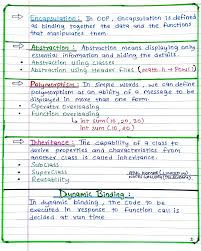 Encapsulation : In OOP, Encapsulation is defined
as binding together the data and the functions
that manipulates them.
Abstraction : Abstraction means displaying only
essential information and hiding the details.
Abstraction using classes
Abstraction using Header files (math.h → pow())
Polymorphism : In simple words, we can define
polymorphism as the ability of a message to be
displayed in more than one form.
Operator Overloading
Function Overloading
int sum (10, 20, 30)
int sum (10, 20)
Inheritance : The capability of a class to
derive properties and characteristics from
another class is called inheritance.
SubClass
SuperClass
Reusability
Dynamic Binding :
In dynamic binding, the code to be
executed in response to function call is
decided at run time.